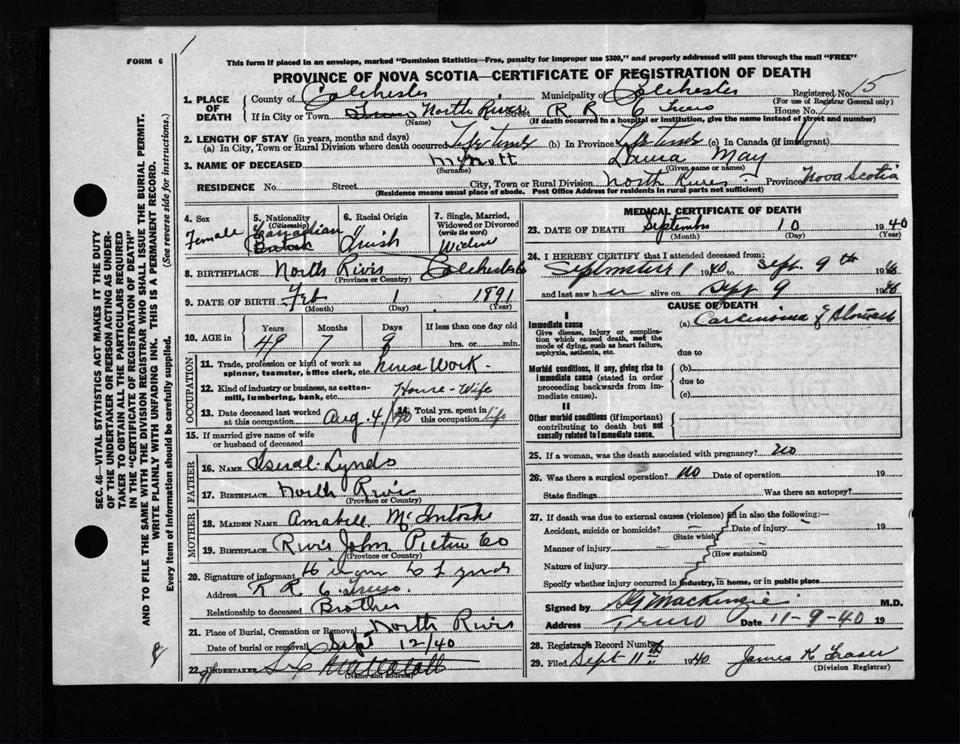 FORM 6
This form if placed in an envelope, marked "Dominion Statistics—Free, penalty for improper use $300," and properly addressed will pass through the mail "FREE"
PROVINCE OF NOVA SCOTIA—CERTIFICATE OF REGISTRATION OF DEATH
1. PLACE OF DEATH
County of Colchester Municipality of Colchester Registered No. 15
(For use of Registrar General only)
If in City or Town North River Street R R 6 Truro House No.
(Name) (If death occurred in a hospital or institution, give the name instead of street and number)
2. LENGTH OF STAY (in years, months and days)
(a) In City, Town or Rural Division where death occurred Life Time (b) In Province Life Time (c) In Canada (if immigrant)
3. NAME OF DECEASED McNutt Laura May
(Surname) (Given name or names)
RESIDENCE No. Street City, Town or Rural Division North River Province Nova Scotia
(Residence means usual place of abode. Post Office Address for residents in rural parts not sufficient)
4. Sex Female
5. Nationality (Citizenship) Canadian
6. Racial Origin
7. Single, Married, Widowed or Divorced (write the word) Widow
8. BIRTHPLACE North River Colchester Co
(Province or Country)
9. DATE OF BIRTH Feb 1 1891
(Month) (Day) (Year)
10. AGE in Years Months Days If less than one day old
49 7 9 hrs. or min.
OCCUPATION
11. Trade, profession or kind of work as spinner, teamster, office clerk, etc. House Work
12. Kind of industry or business, as cotton-mill, lumbering, bank, etc. House-Wife
13. Date deceased last worked at this occupation Aug. 4/40 Total yrs. spent in this occupation life
15. If married give name of wife or husband of deceased
FATHER
16. NAME Lynds
17. BIRTHPLACE North River
(Province or Country)
MOTHER
18. MAIDEN NAME Annabell McIntosh
19. BIRTHPLACE River John Pictou Co
(Province or Country)
20. Signature of informant Lynds
Address R R 6 Truro.
Relationship to deceased Brother
21. Place of Burial, Cremation or Removal North River
Date of burial or removal Sept 12/40
22. UNDERTAKER
(Name and address)
MEDICAL CERTIFICATE OF DEATH
23. DATE OF DEATH September 10 1940
(Month) (Day) (Year)
24. I HEREBY CERTIFY that I attended deceased from
September 1 1940 to Sept. 9th 1940
and last saw her alive on Sept 9 1940
CAUSE OF DEATH
I
Immediate cause
Give disease, injury or complication which caused death, not the mode of dying, such as heart failure, asphyxia, asthenia, etc.
(a) Carcinoma of Stomach
due to
Morbid conditions, if any, giving rise to immediate cause (stated in order proceeding backwards from immediate cause).
(b)
due to
(c)
II
Other morbid conditions (if important) contributing to death but not causally related to immediate cause.
25. If a woman, was the death associated with pregnancy? no
26. Was there a surgical operation? no Date of operation 19
State findings Was there an autopsy?
27. If death was due to external causes (violence) fill in also the following:—
Accident, suicide or homicide? Date of injury 19
(State which)
Manner of injury
(How sustained)
Nature of injury
Specify whether injury occurred in industry, in home, or in public place
Signed by MacKenzie M.D.
Address Truro Date 11-9-40 19
28. Registrars Record Number
29. Filed Sept 11 1940 James K Fraser
(Division Registrar)
SEC. 46—VITAL STATISTICS ACT MAKES IT THE DUTY
OF THE UNDERTAKER OR PERSON ACTING AS UNDER-
TAKER TO OBTAIN ALL THE PARTICULARS REQUIRED
IN THE "CERTIFICATE OF REGISTRATION OF DEATH"
AND TO FILE THE SAME WITH THE DIVISION REGISTRAR WHO SHALL ISSUE THE BURIAL PERMIT.
WRITE PLAINLY WITH UNFADING INK. THIS IS A PERMANENT RECORD.
Every item of information should be carefully supplied. (See reverse side for instructions.)